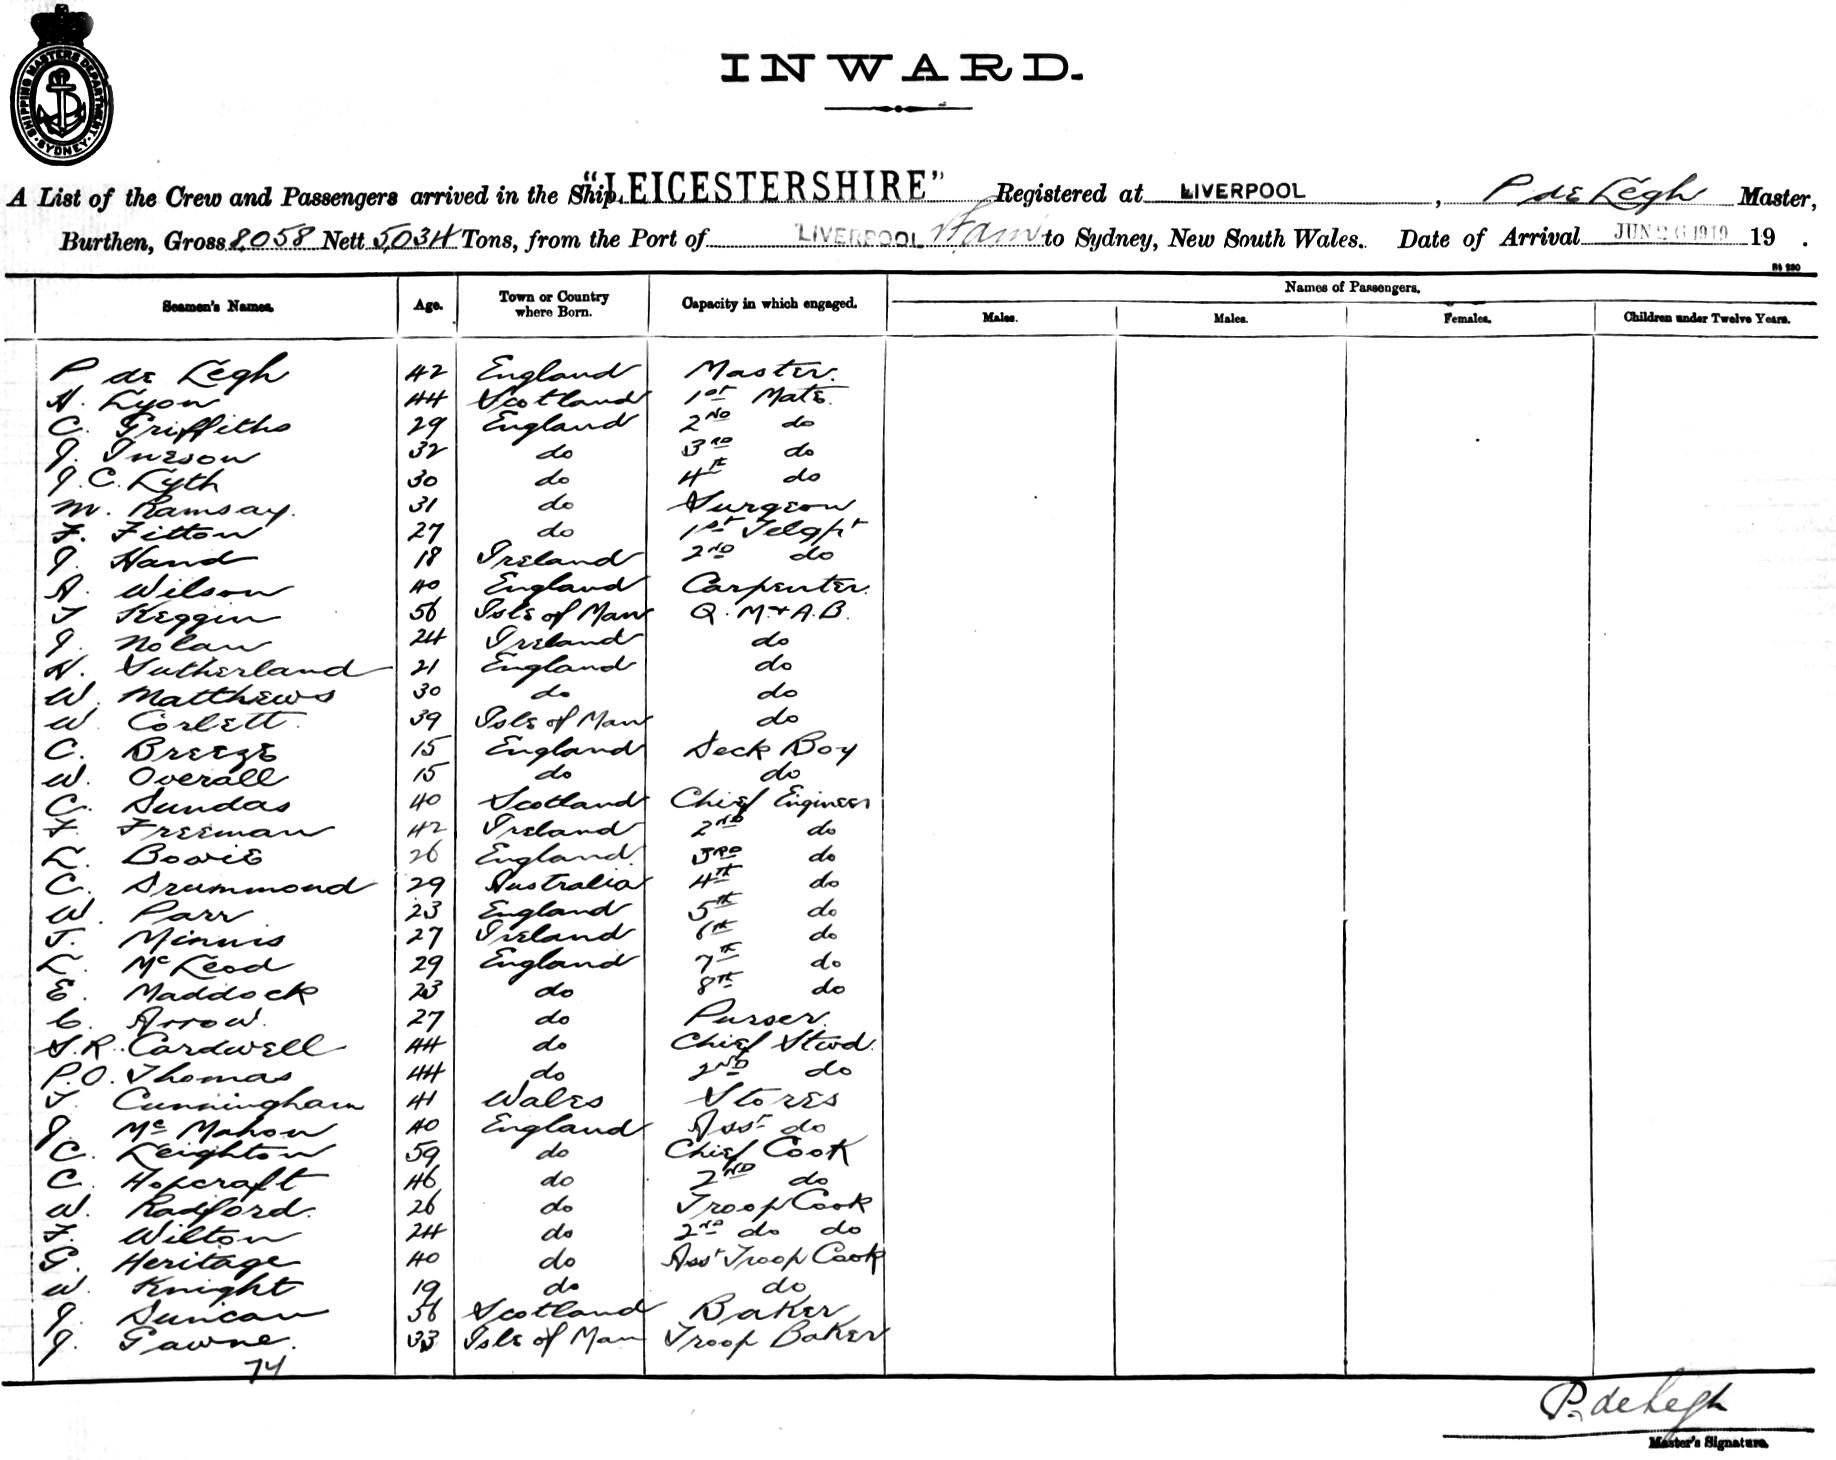 SHIPPING MASTERS DEPARTMENT · SYDNEY ·
INWARD.
A List of the Crew and Passengers arrived in the Ship "LEICESTERSHIRE" Registered at LIVERPOOL, P de Legh Master,
Burthen, Gross 8058 Nett 5034 Tons, from the Port of LIVERPOOL to Sydney, New South Wales. Date of Arrival JUN 26 1919 19 .
Seamen's Names. Age. Town or Country where Born. Capacity in which engaged. Names of Passengers.
Males. Males. Females. Children under Twelve Years.
P de Legh 42 England Master.
H. Lyon 44 Scotland 1st Mate.
C. Griffiths 29 England 2nd do
J. Iveson 32 do 3rd do
J. C. Lyth 30 do 4th do
M. Ramsay. 31 do Surgeon
F. Fitton 27 do 1st Telgpt
J. Hand 18 Ireland 2nd do
A. Wilson 40 England Carpenter.
T Keggin 56 Isle of Man Q. M. + A.B.
J. Nolan 24 Ireland do
H. Sutherland 21 England do
W. Matthews 30 do do
W. Corlett. 39 Isle of Man do
C. Breeze 15 England Deck Boy
W. Overall 15 do do
C. Dundas 40 Scotland Chief Engineer
F. Freeman 42 Ireland 2nd do
L. 26 England. 3rd do
C. Drummond 29 Australia 4th do
W. Parr 23 England 5th do
J. Minnis 27 Ireland 6th do
L. McLeod 29 England 7th do
E. Maddock 23 do 8th do
C. Arrow. 27 do Purser.
S. R. Cardwell 44 do Chief Stwd.
P. O. Thomas 44 do 2nd do
T. Cunningham 41 Wales Stores
J. McMahon 40 England Asst do
C. Leighton 59 do Chief Cook
C. Hopcraft 46 do 2nd do
W. Radford. 26 do Troop Cook
F. Wilton 24 do 2nd do do
G. Heritage 40 do Asst Troop Cook
W. Knight 19 do do
J. Duncan 56 Scotland Baker
J. Gawne. 33 Isle of Man Troop Baker
74
P. de Legh
Master's Signature.